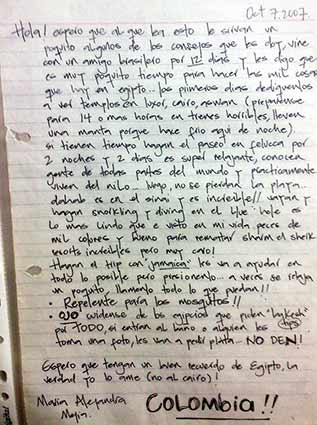 Oct 7. 2007.
Hola! espero que al que lea esto le sirvan un
poquito algunos de los consejos que les doy, vine
con un amigo brasilero por 12 dias y les digo que
es muy poquito tiempo para hacer las mil cosas
que hay en egypto... los primeros dias dediquenlos
a ver templos en luxor, cairo, aswan (preparense
para 14 o mas horas en trenes horribles, lleven
una manta porque hace frio aqui de noche).
si tienen tiempo hagan el paseo en felucca por
2 noches y 2 dias es super relajante, conocen
gente de todas partes del mundo y practicamente
viven del nilo... no se pierdan la playa...
dahab es en el sinai y es increible!! vayan y
hagan snorkling y diving en el blue hole es
lo mas lindo que e visto en mi vida peces de
mil colores y bueno para rematar sharm el sheik
resorts increibles pero muy caro!
Hagan el trip con "jamaica" les va a ayudar en
todo lo posible pero presionenlo... a veces se relaja
un poquito, llamenlo todo lo que puedan!!
· Repelente para los mosquitos!!
· OJO cuidense de los egipcios que piden
por TODO, si entran al baño o alguien les
toma una foto, les van a pedir plata... NO DEN!
Espero que tengan un buen recuerdo de Egipto, la
verdad yo lo ame (no al cairo)!
Maria Alejandra
Mejia.
COLOMBIA!!